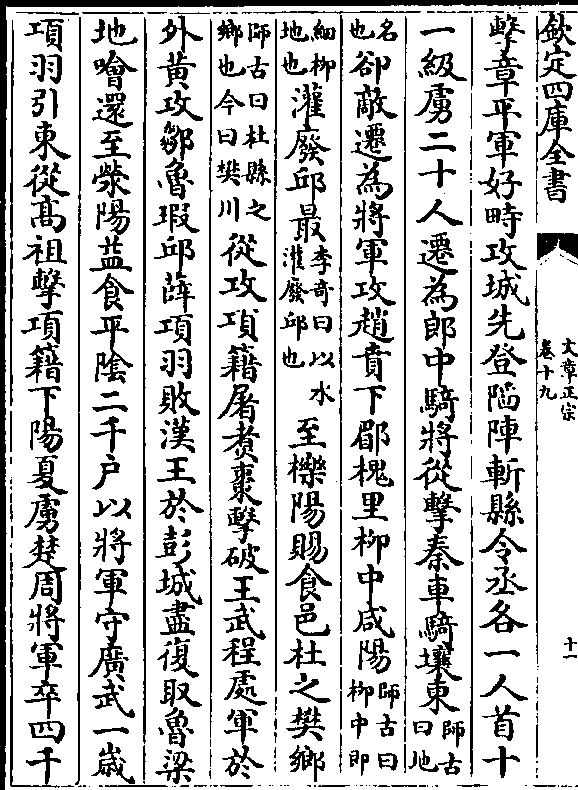 欽定四庫全書
文章正宗
卷十九
十一
擊章平軍好畤攻城先登陷陣斬縣令丞各一人首十
一級虜二十人遷為郎中騎將從擊秦車騎壤東師古曰地
名也卻敵遷為將軍攻趙賁下郿槐里柳中咸陽師古曰柳中即
細柳地也灌廢邱最李奇曰以水灌廢邱也至櫟陽賜食邑杜之樊鄉
師古曰杜縣之鄉也今曰樊川從攻項籍屠煑棗擊破王武程處軍於
外黃攻鄒魯瑕邱薛項羽敗漢王於彭城盡復取魯梁
地噲還至滎陽益食平隂二千户以將軍守廣武一嵗
項羽引東從髙祖擊項籍下陽夏虜楚周將軍卒四千